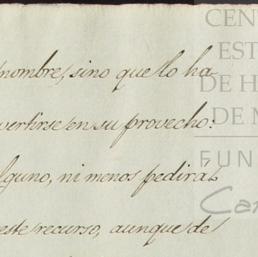 nombre, sino que lo ha-
vertirse en su provecho:
lguno, ni menos pedira-
este recurso, aunque de
CEN
EST
DE H
DE M
FUN
Ca